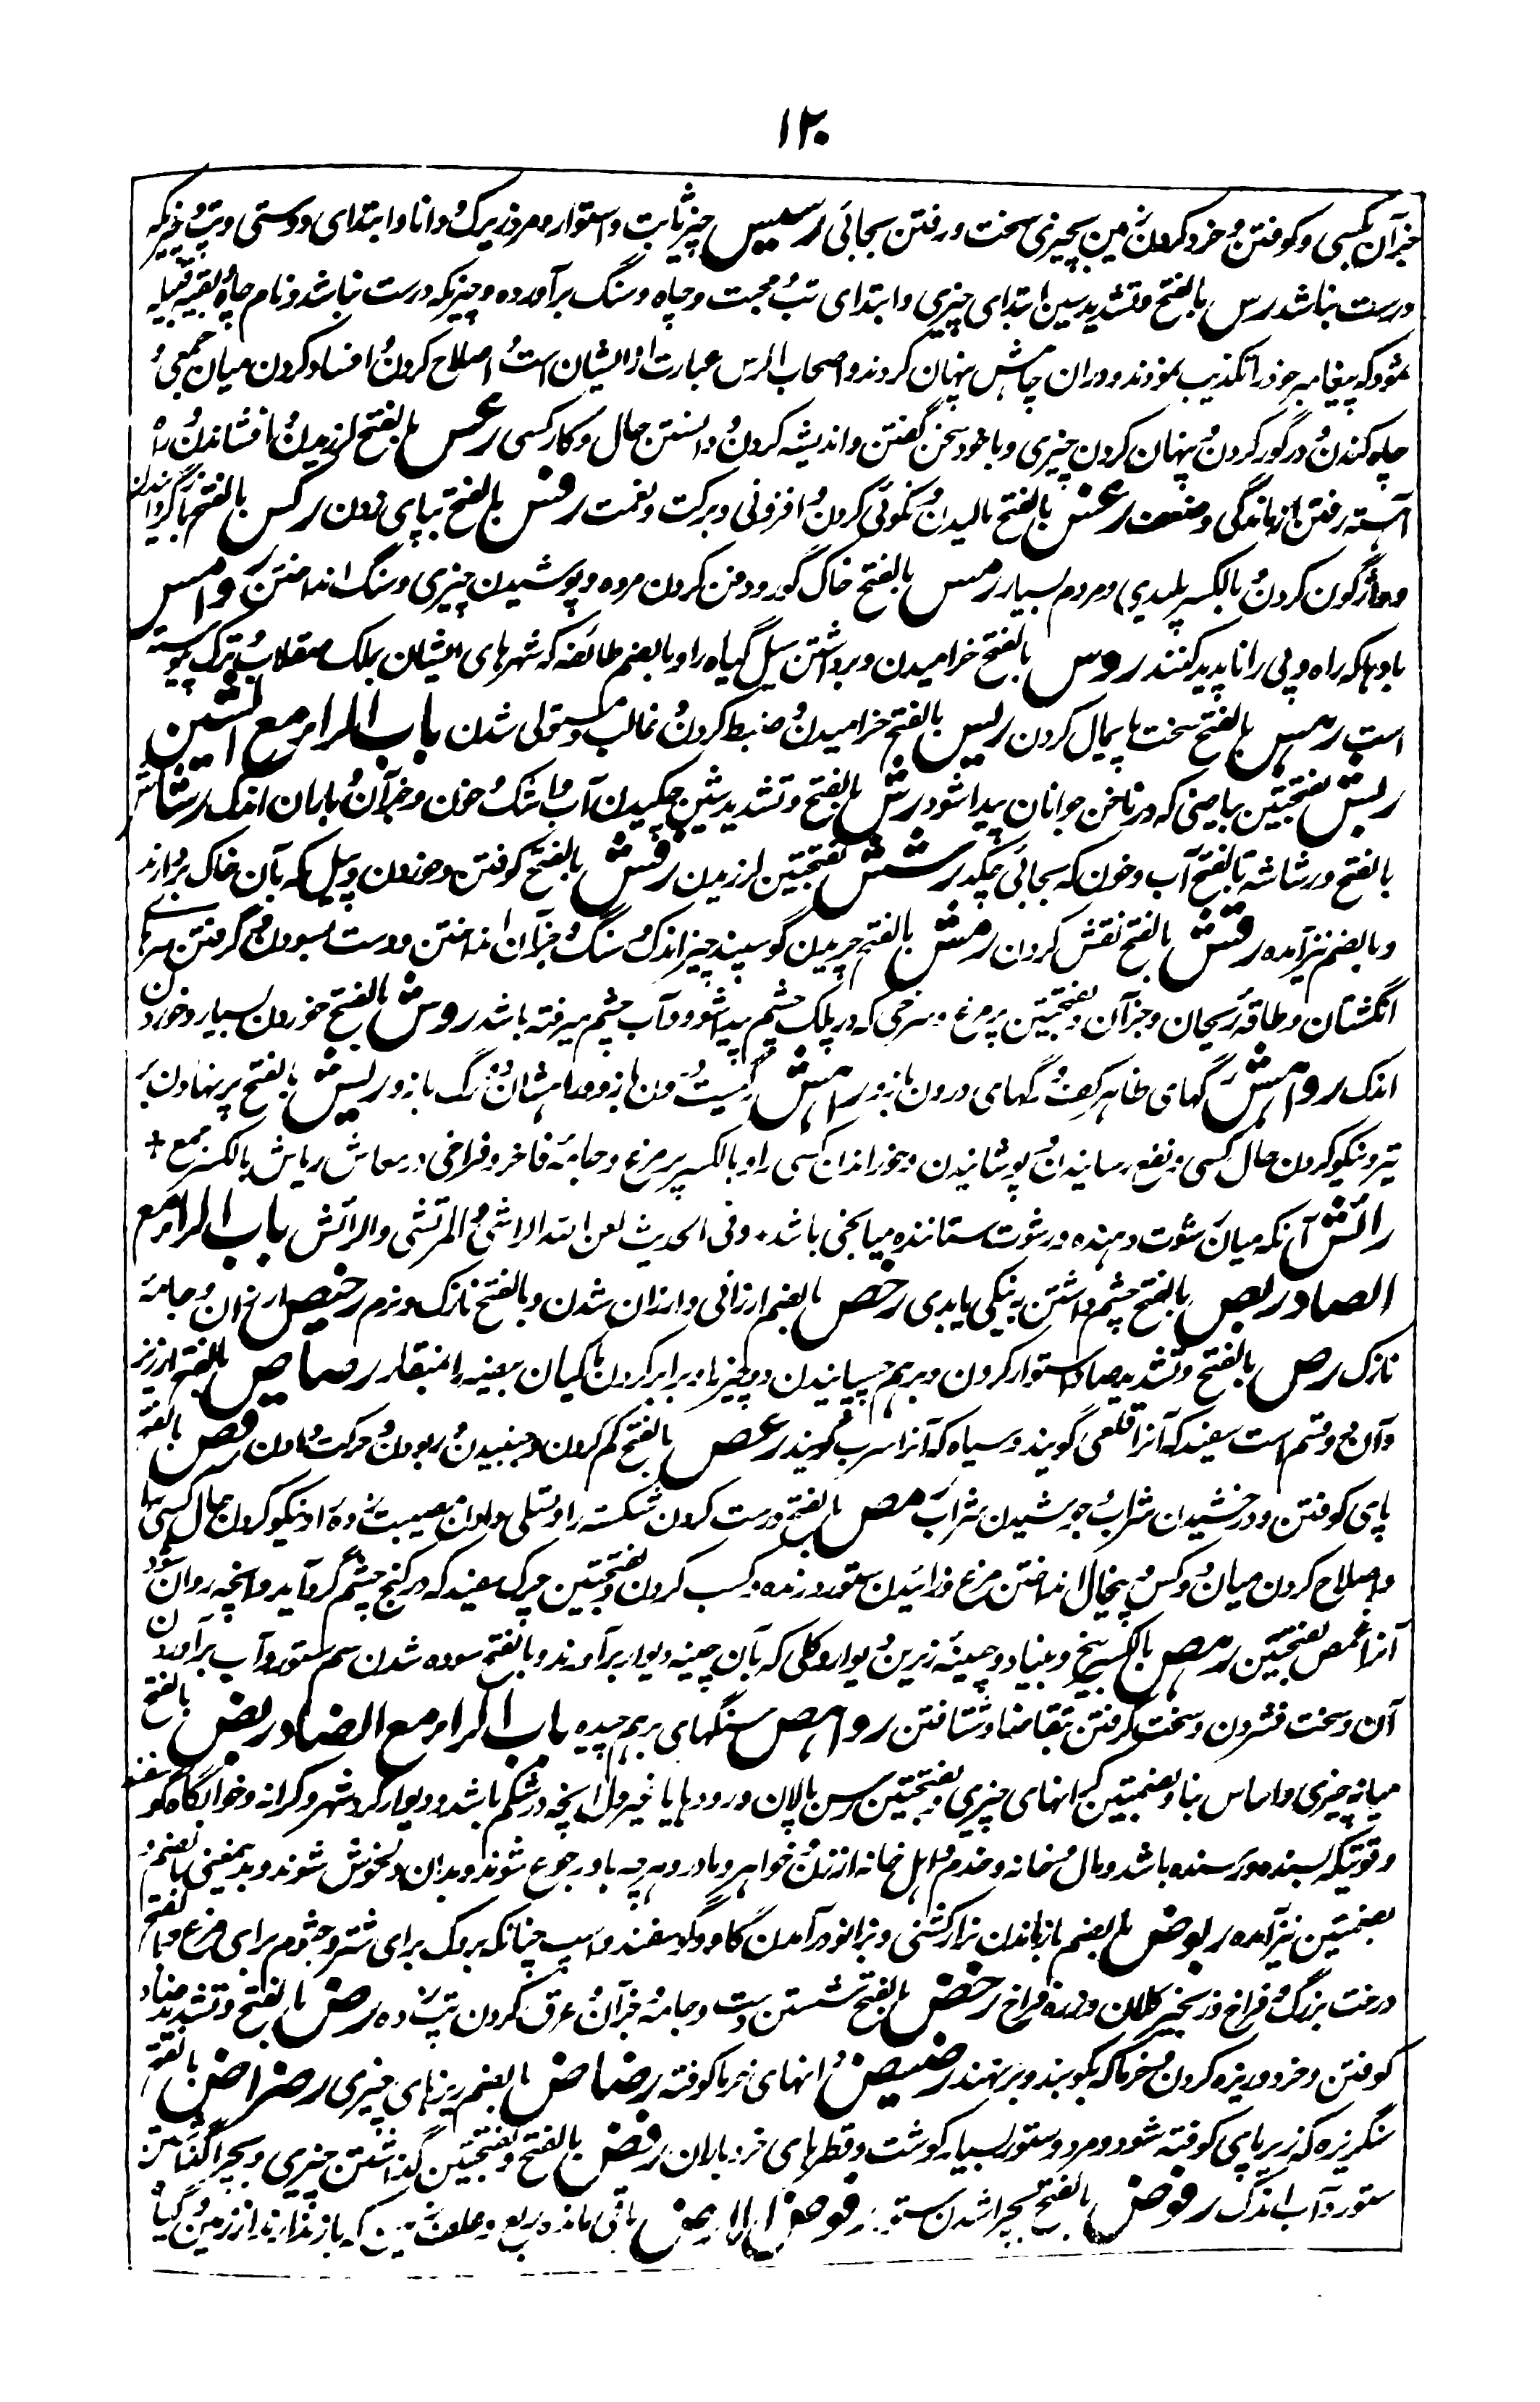 ۱۲۰
جز آن بکسی و کوفتن و خرد کردن زمین بچیزی سخت و رفتن بجائی رسیس چیز ثابت و استوار و مرد زیرک و دانا و ابتدای دوستی و تپ و خبریکه
درست نباشد رس بالفتح و تشدید سین ابتدای چیزی و ابتدای تب و محبت و چاه و سنگ برآورده و چیزیکه درست نباشد و نام چاه بقیه قبیله
ثمود که پیغامبر خود را تکذیب نمودند و دران چاهش پنهان کردند و اصحاب الرس عبارت از ایشان است و اصلاح کردن و افساد کردن میان جمعی و
چاه کندن و در گور کردن و پنهان کردن چیزی و با خود سخن گفتن و اندیشه کردن و دانستن حال و کار کسی رعس بالفتح لرزیدن و افشاندن و راه
آهسته رفتن از ماندگی و ضعف رغس بالفتح بالیدن و نکوئی کردن و افزونی و برکت و نعمت رفس بالفتح بپای زدن رکس بالفتح بازگردانیدن
و واژگون کردن و بالکسر پلیدی و مردم بسیار رمس بالفتح خاک گور و دفن کردن مرده و پوشیدن چیزی و سنگ انداختن روامس
بادها که راه و پی را ناپدید کنند روس بالفتح خرامیدن و برداشتن سیل گیاه را و بالضم طائفه که شهرهای ایشان بملک صقلاب و ترک پیوسته
است رهس بالفتح سخت پایمال کردن ریس بالفتح خرامیدن و ضبط کردن و غالب و مستولی شدن باب الراء مع الشین
ربش بفتحتین بیاضی که در ناخن جوانان پیدا شود رش بالفتح و تشدید شین چکیدن آب و اشک و خون و جز آن و باران اندک رشاش
بالفتح و رشاشه بالفتح آب و خون که بجائی چکد رشش بفتحتین لرزیدن رفش بالفتح کوفتن و خوردن و بیل که بآن خاک بردارند
و بالضم نیز آمده رقش بالفتح نقش کردن رمش بالفتح چریدن گوسپند چیز اندک و سنگ و جز آن انداختن و دست بسودن و گرفتن بسرهای
انگشتان و طاقه ریحان و جز آن و بفتحتین پرمغ و سرخی که در پلک چشم پیدا شود و آب چشم میرفته باشد روش بالفتح خوردن بسیار و خوردن
اندک رواهش رگهای ظاهر کف و رگهای درون بازو راهش رگیست درون بازو و راهشان دو رگ بازو ریش بالفتح پر نهادن بر
تیر و نیکو کردن حال کسی و نفع رسانیدن و پوشانیدن و خوراندن کسی را و بالکسر پر مرغ و جامه فاخر و فراخی در معاش ریاش بالکسر جمع
رائش آنکه میان رشوت دهنده و رشوت ستاننده میانجی باشد و فی الحدیث لعن الله الراشی و المرتشی و الرائش باب الراء مع
الصاد ربص بالفتح چشم داشتن به نیکی یا بدی رخص بالضم ارزانی و ارزان شدن و بالفتح نازک و نرم رخیص ارزان و جامه
نازک رص بالفتح و تشدید صاد استوار کردن و برهم چسپانیدن دو چیز را و برابر کردن ماکیان بیضه را بمنقار رصاص بالفتح ارزیز
و آن دو قسم است سفید که آنرا قلعی گویند و سیاه که آنرا سرب گویند رعص بالفتح کم کردن و جنبیدن و ربودن و حرکت دادن رقص بالفتح
پای کوفتن و درخشیدن شراب و جوشیدن شراب رمص بالفتح درست کردن شکسته را و تسلی دادن مصیبت زده را و نیکو کردن حال کسی
و اصلاح کردن میان دو کس و پیخال انداختن مرغ و زائیدن ستور درنده و کسب کردن و بفتحتین چرک سفید که در کنج چشم گرد آید و آنچه روان شود
آنرا غمص بفتحتین رهص بالکسر بیخ و بنیاد و چینه زیرین دیوار و گلی که بآن چینه دیوار برآورند و بالفتح سوده شدن سم ستور و آب برآوردن
آن و سخت فشردن و سخت گرفتن بتقاضا و شتافتن رواهص سنگهای برهم چیده باب الراء مع الضاد ربض بالفتح
میانه چیزی و اساس بنا و بضمتین کرانهای چیزی و بفتحتین رسن پالان و رودها یا غیر دل آنچه در شکم باشد و دیوار گرد شهر و کرانه و خوابگاه گوسفند
و قوتیکه بسنده و رسنده باشد و مال و خانه و خدم و اهل خانه از زن و خواهر و مادر و هرچه باو رجوع شوند و بدان دلخوش شوند و بدینمعنی بالضم و
بضمتین نیز آمده ربوض بالضم بازماندن نر از گشنی و بزانو درآمدن گاو و گوسفند و اسپ چنانکه بروک برای شتر و جثوم برای مرغ و بالفتح
درخت بزرگ و فراخ و زنجیر کلان و زره فراخ رحض بالفتح شستن دست و جامه و جز آن و عرق کردن تپ زده رض بالفتح و تشدید ضاد
کوفتن و خرد و ریزه کردن و خرما که بکوبند و بر نهند رضیض دانهای خرما کوفته رضاض بالضم ریزهای چیزی رضراض بالفتح
سنگریزه که زیر پای کوفته شود و مرد و ستور بسیار گوشت و قطرهای خرد باران رفض بالفتح و بفتحتین گذاشتن چیزی و بچرا گذاشتن
ستور و آب اندک رفوض بالفتح بچرا شدن ستور رفوض الارض باقی مانده بلیغ و علف زمین که بازندارند از زمین و گیاه